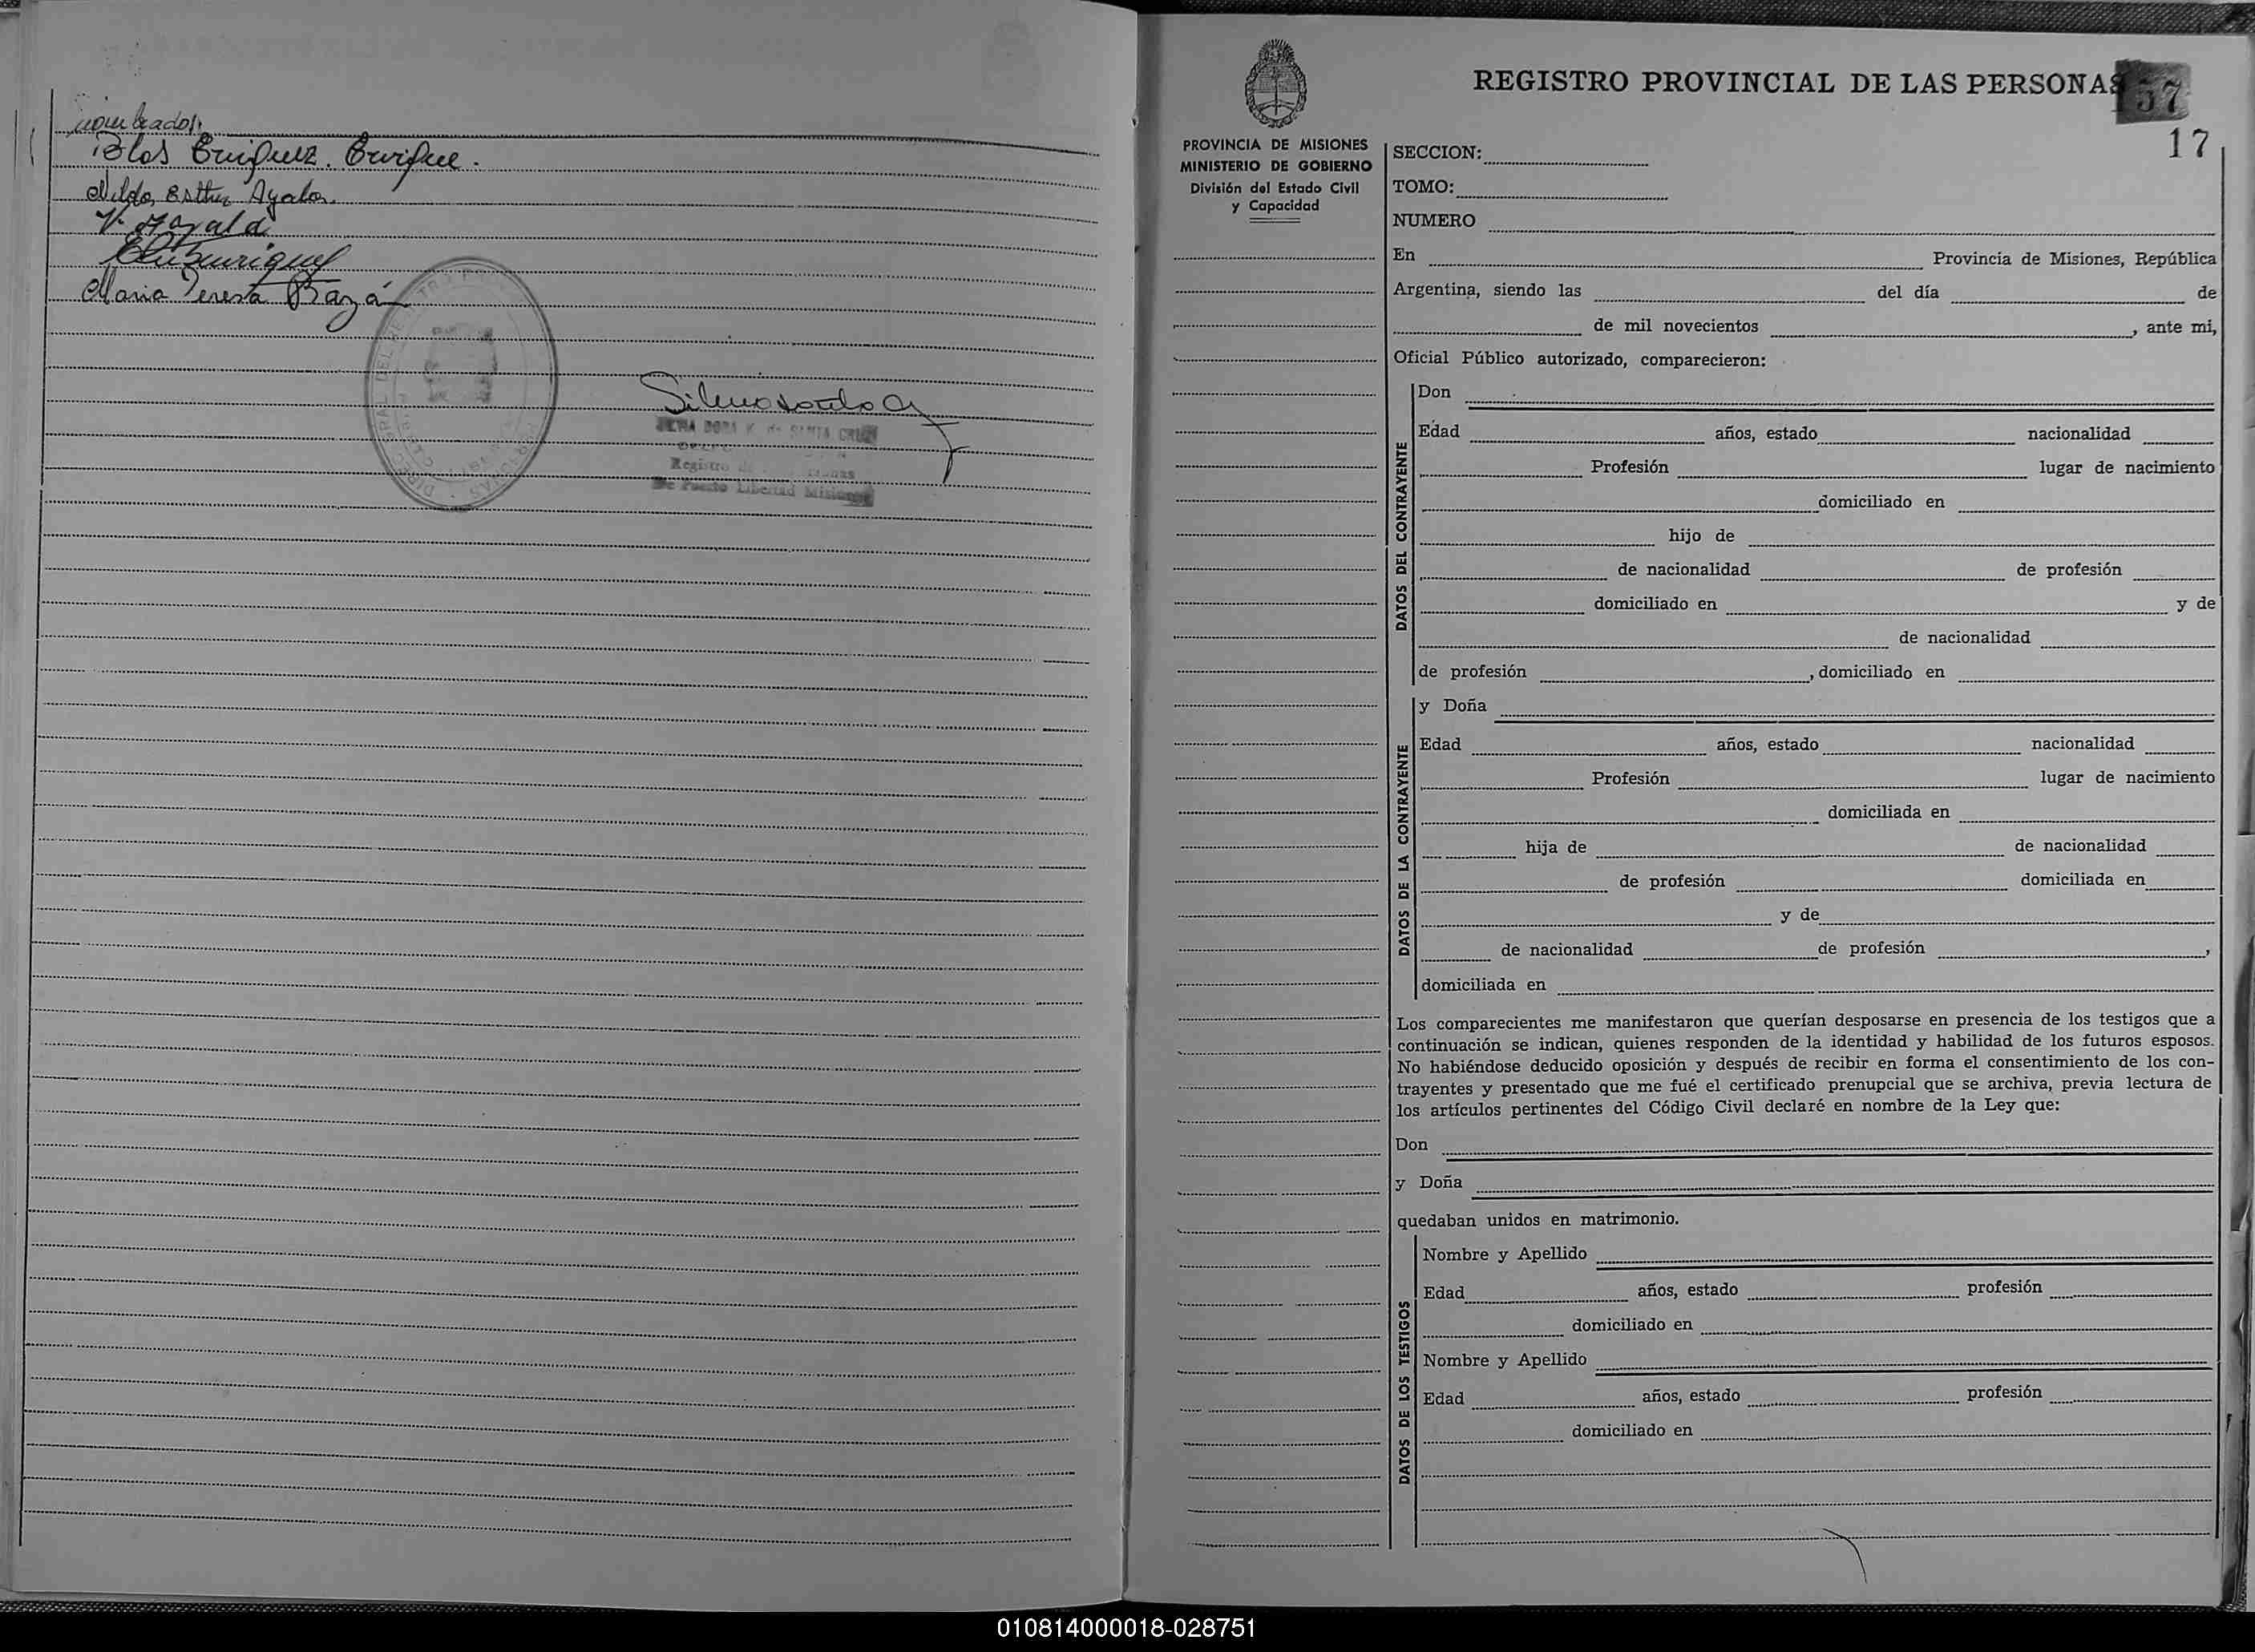 nombrados.
Blas Enriquez. Enrique.
Nilda Esther Ayala.
V. Ayala
Enriquez
Maria Teresa Bazán
SANTA CRUZ
Registro de
De Puerto Libertad Misiones
REGISTRO PROVINCIAL DE LAS PERSONAS
57
17
PROVINCIA DE MISIONES
MINISTERIO DE GOBIERNO
División del Estado Civil
y Capacidad
SECCION:
TOMO:
NUMERO
En Provincia de Misiones, República
Argentina, siendo las del día de
de mil novecientos , ante mi,
Oficial Público autorizado, comparecieron:
DATOS DEL CONTRAYENTE
Don
Edad años, estado nacionalidad
Profesión lugar de nacimiento
domiciliado en
hijo de
de nacionalidad de profesión
domiciliado en y de
de nacionalidad
de profesión , domiciliado en
DATOS DE LA CONTRAYENTE
y Doña
Edad años, estado nacionalidad
Profesión lugar de nacimiento
domiciliada en
hija de de nacionalidad
de profesión domiciliada en
y de
de nacionalidad de profesión ,
domiciliada en
Los comparecientes me manifestaron que querían desposarse en presencia de los testigos que a
continuación se indican, quienes responden de la identidad y habilidad de los futuros esposos.
No habiéndose deducido oposición y después de recibir en forma el consentimiento de los con-
trayentes y presentado que me fué el certificado prenupcial que se archiva, previa lectura de
los artículos pertinentes del Código Civil declaré en nombre de la Ley que:
Don
y Doña
quedaban unidos en matrimonio.
DATOS DE LOS TESTIGOS
Nombre y Apellido
Edad años, estado profesión
domiciliado en
Nombre y Apellido
Edad años, estado profesión
domiciliado en
010814000018-028751